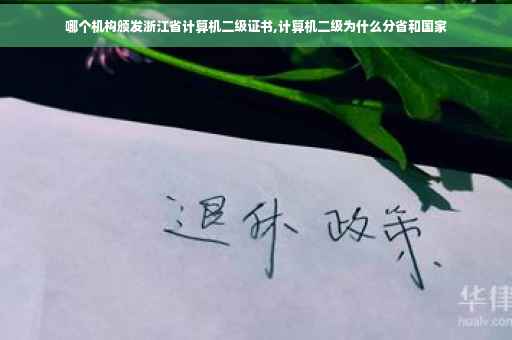 哪个机构颁发浙江省计算机二级证书,计算机二级为什么分省和国家
退休 政策
华律
hualv.com